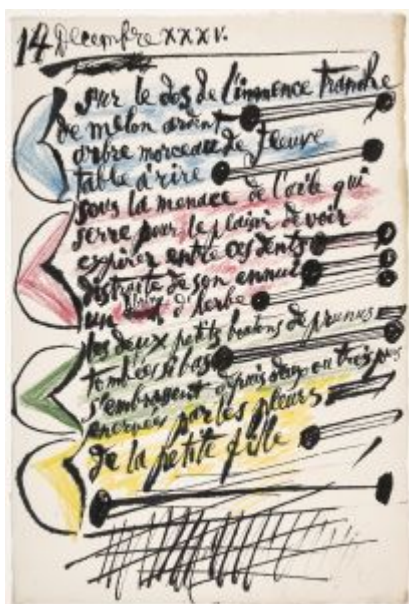 14 Decembre XXXV.
sur le dos de l'immence tranche
de melon ardent
arbre morceau de fleuve
table à rire
sous la menace de l'aile qui
serre pour le plaisir de voir
expirer entre ces dents
distraite de son ennui
un d'herbe
les deux petits boutons de prunus
tombées si bas
s'embrassent depuis deux ou trois
par les pleurs
de la petite fille